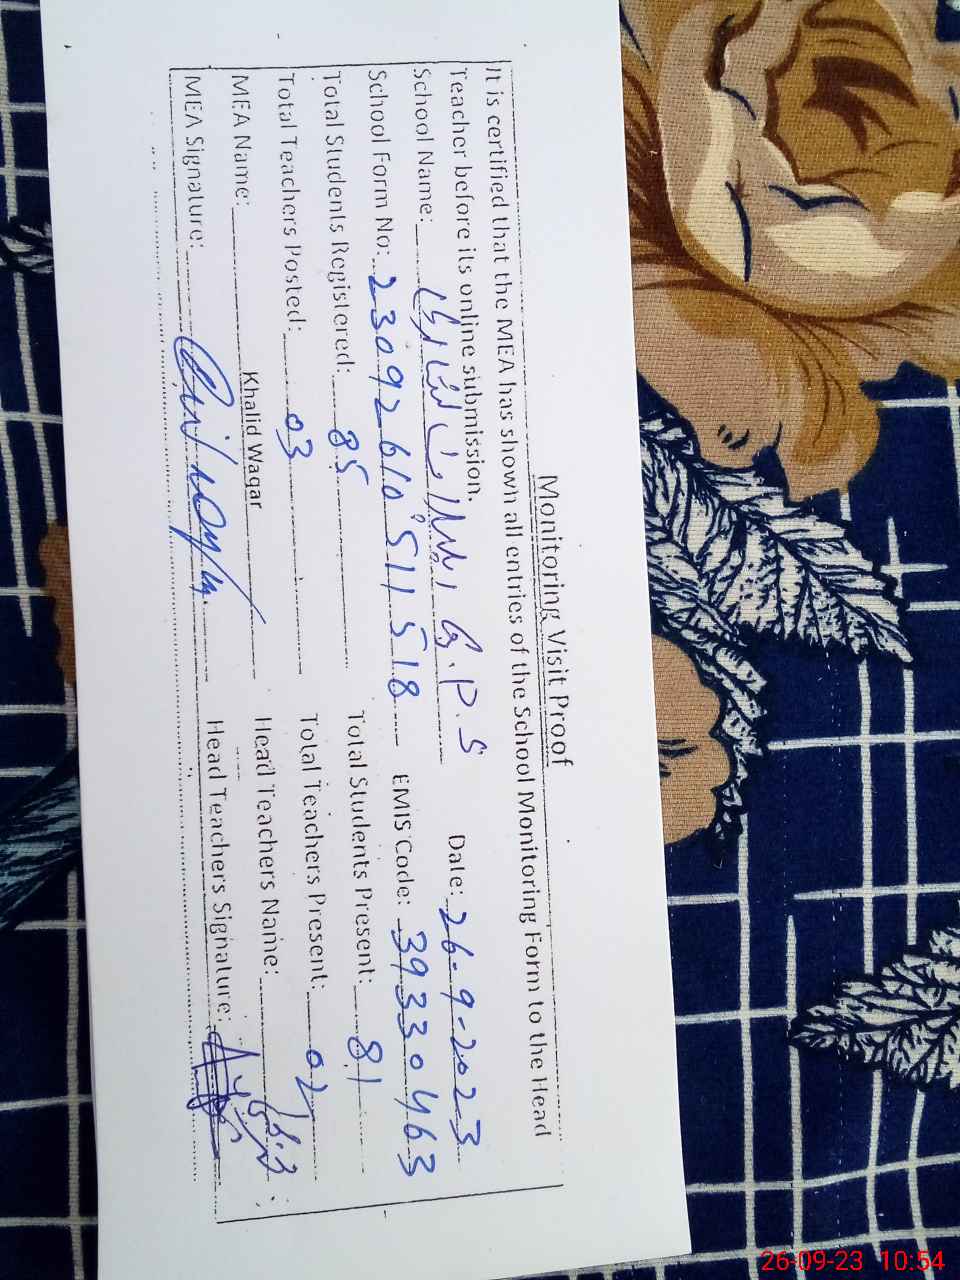 Monitoring Visit Proof
It is certified that the MEA has shown all entries of the School Monitoring Form to the Head
Teacher before its online submission.
School Name: G.P.S Date: 26-9-2023
School Form No: 23092610511518 EMIS Code: 39330463
Total Students Registered: 85 Total Students Present: 81
Total Teachers Posted: 03 Total Teachers Present: 02
MEA Name: Khalid Waqar Head Teachers Name:
MEA Signature: Head Teachers Signature:
26-09-23 10:54